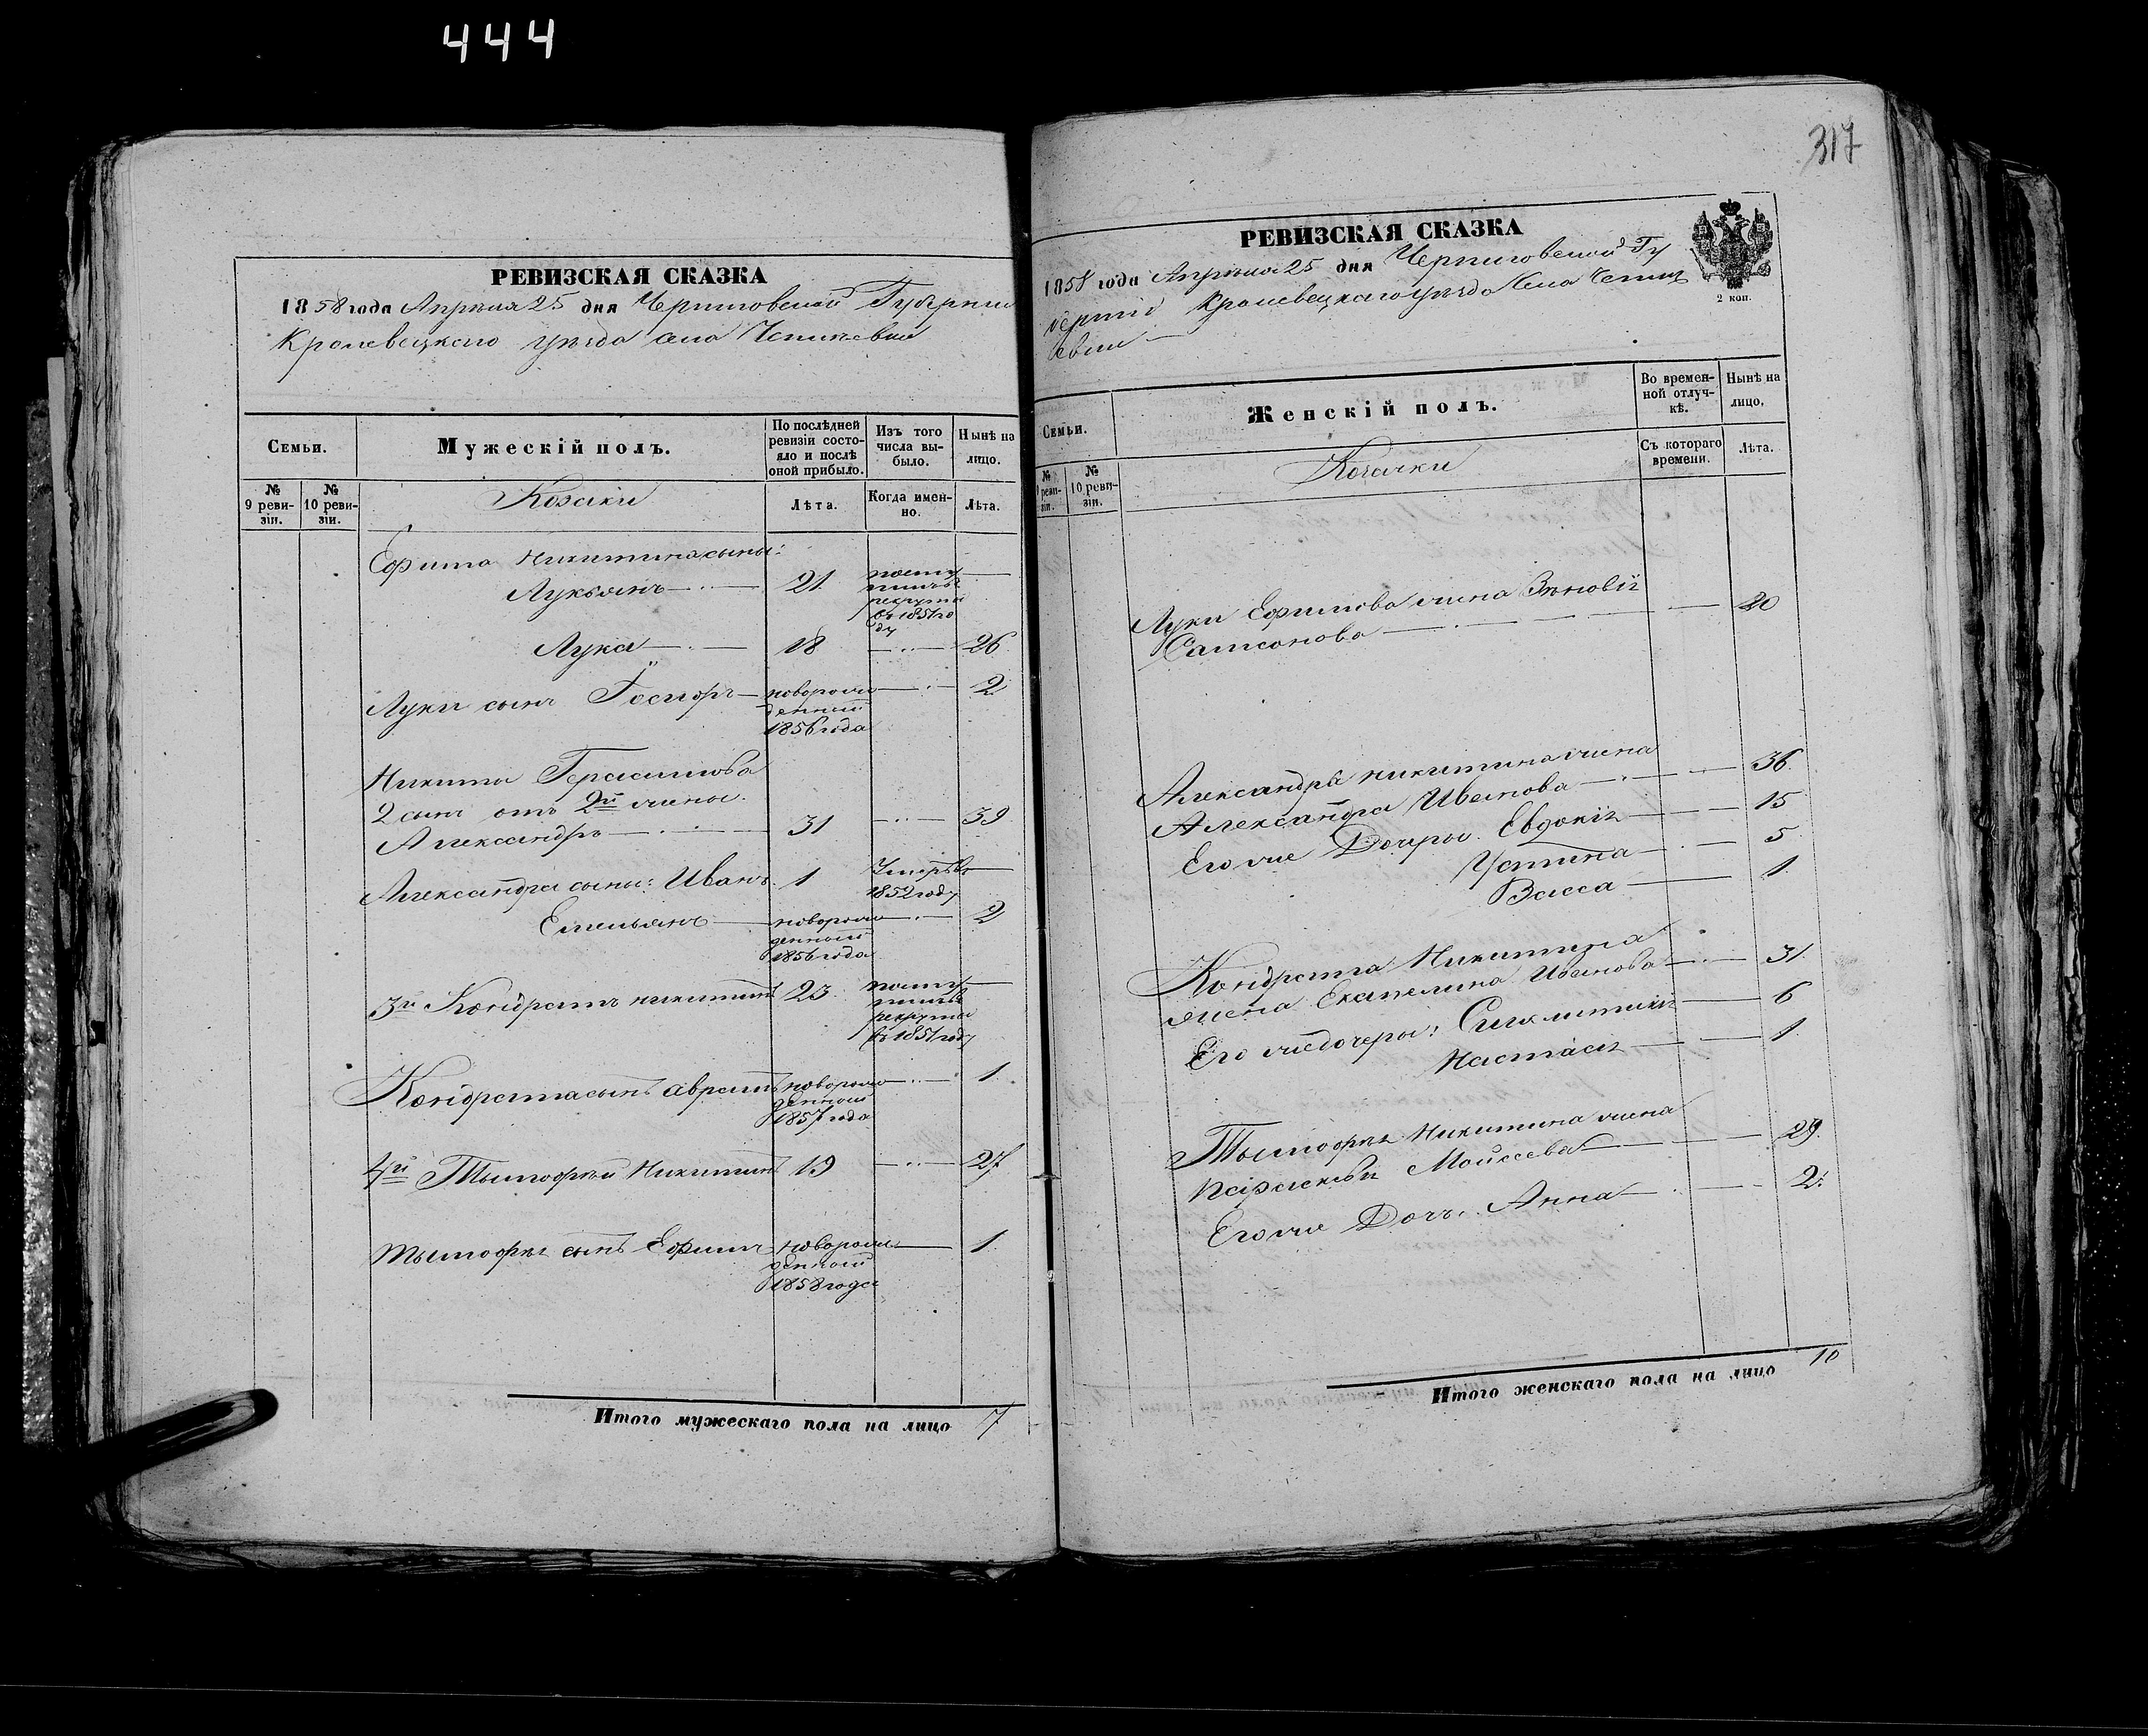 444
РЕВИЗСКАЯ СКАЗКА
1858 года Апреля 25 дня Черниговской Губернии
Кролевецкого уезда села Чепиевки
Семьи.
Мужескій полъ.
По послѣдней ревизіи состояло и послѣ оной прибыло.
Изъ того числа выбыло.
Нынѣ на лицо.
№ 9 ревизіи.
№ 10 ревизіи.
Козаки
Лѣта.
Когда именно.
Лѣта.
Ефима Никитина сыны:
Лукьянъ 21 поступилъ в рекруты въ 1851 году
Лука 18 26
Луки сынъ новорожденный 1856 года 2
Никиты Герасимова
2 сынъ отъ 2й жены
Александръ 31 39
Александра сыны: Иванъ 1 Умръ въ 1852 году
Емельянъ новорожденный 1856 года 2
3й Кондратъ Никитинъ 23 поступилъ в рекруты въ 1851 году
Кондрата сынъ Аврамъ новорожденный 1857 года 1
4й Тымофей Никитинъ 19 27
Тымофея сынъ Ефимъ новорожденный 1858 года 1
Итого мужескаго пола на лицо 7
317
РЕВИЗСКАЯ СКАЗКА
2 коп.
1858 года Апреля 25 дня Черниговской Гу
берніи Кролевецкаго уезда Села Чепи
евки
Семьи.
Женскій полъ.
Во временной отлучкѣ.
Нынѣ на лицо.
№ 9 ревизіи.
№ 10 ревизіи.
Козачки
Съ котораго времени.
Лѣта.
Луки Ефимова жена Зѣновія
Самсонова 20
Александра Никитина жена
Александра Иванова 36
Его же Дочеры Евдокія 15
Устина 5
Васса 1
Кондрата Никитина
жена Екатерина Иванова 31
Его же дочеры: 6
Настася 1
Тымофея Никитина жена
Параскевя Мойсеева 29
Его же Дочь Анна 2
Итого женскаго пола на лицо 10